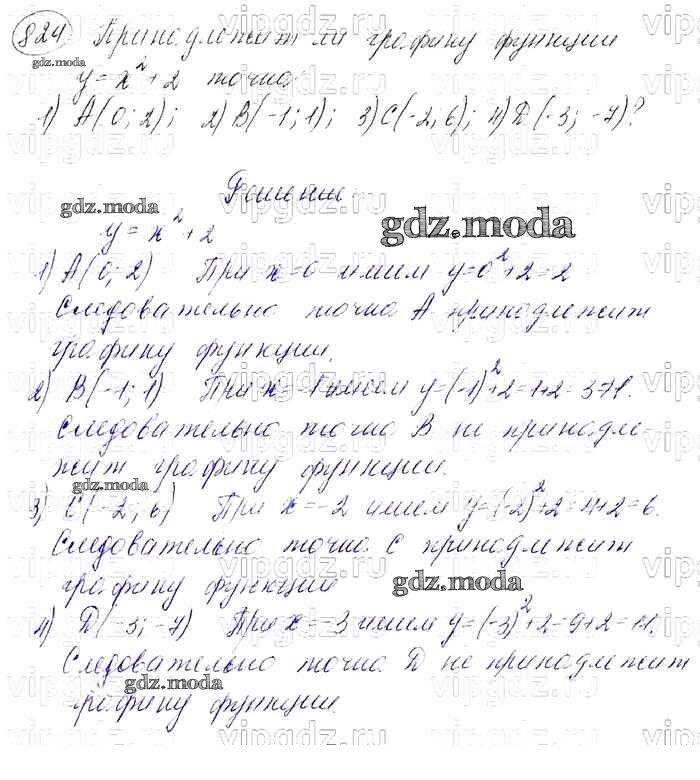 824 Принадлежит ли графику функции
gdz.moda
y = x² + 2 точка:
1) A(0; 2); 2) B(-1; 1); 3) C(-2; 6); 4) D(-3; -7)?
Решение.
gdz.moda
y = x² + 2
gdz.moda
1) A(0; 2) При x = 0 имеем y = 0² + 2 = 2
Следовательно точка A принадлежит
графику функции.
2) B(-1; 1) При x = -1 имеем y = (-1)² + 2 = 1 + 2 = 3 ≠ 1.
Следовательно точка B не принадле-
жит графику функции.
gdz.moda
3) C(-2; 6) При x = -2 имеем y = (-2)² + 2 = 4 + 2 = 6.
Следовательно точка C принадлежит
графику функции
gdz.moda
4) D(-3; -7) При x = -3 имеем y = (-3)² + 2 = 9 + 2 = 11.
Следовательно точка D не принадлежит
gdz.moda
графику функции.
vipgdz.ru